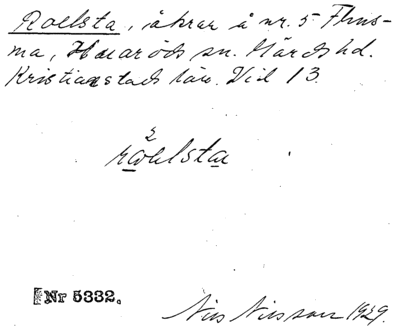 Roelsta, åkrar å nr. 5 Flins-
ma, Huaröds sn. Gärds hd.
Kristianstads län. Vid 13.
2
Nr 5332.
Nils Nilsson 1929.